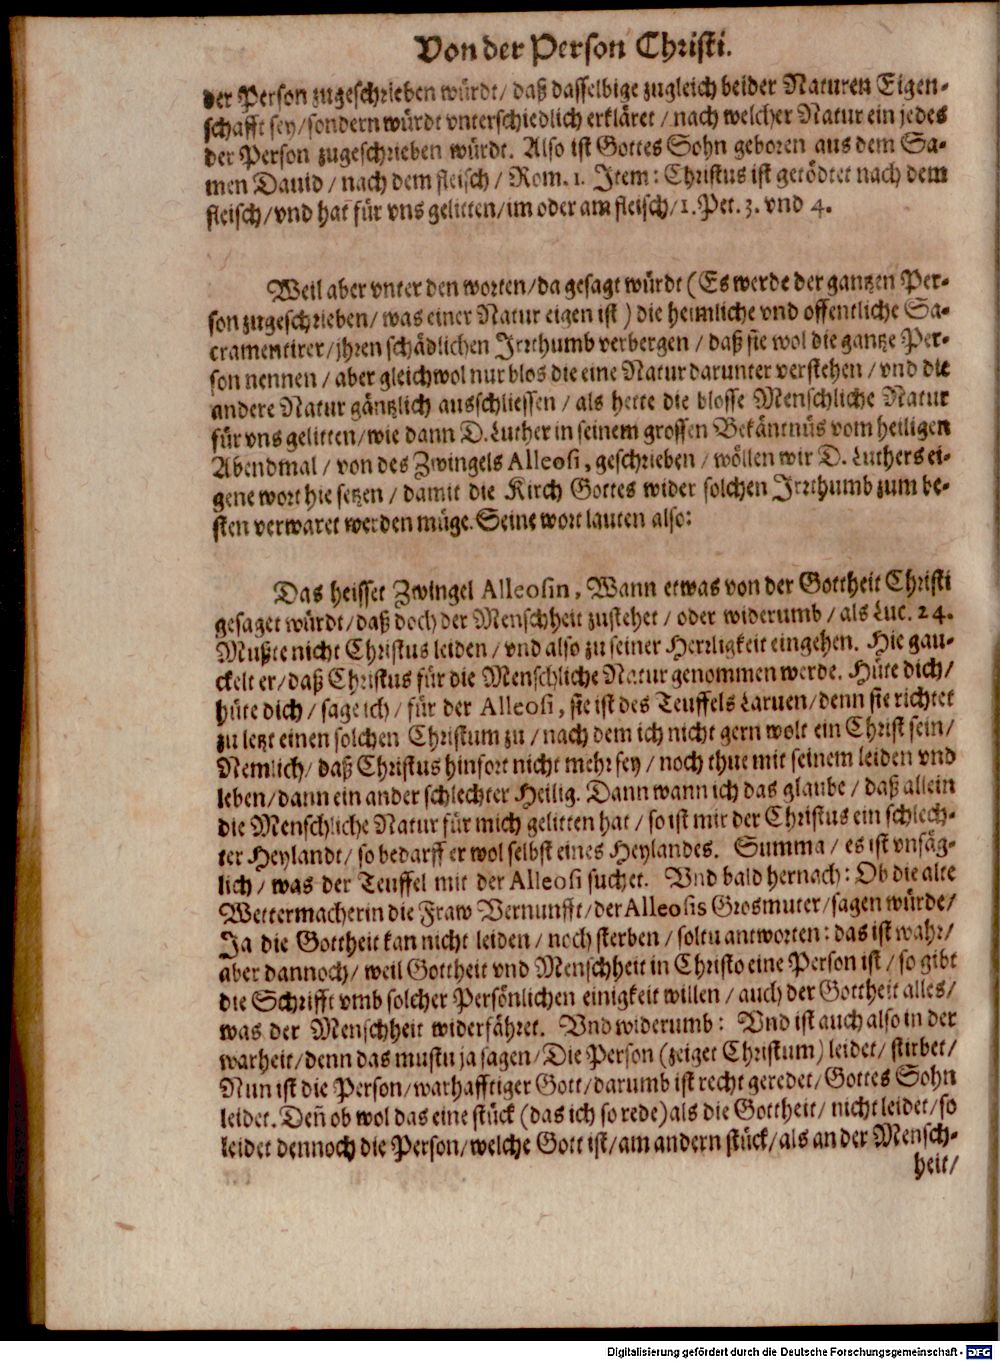 Von der Person Christi.
der Person zugeschrieben würdt/ daß dasselbige zugleich beider Naturen Eigen-
schafft sey/ sondern würdt vnterschiedlich erkläret / nach welcher Natur ein jedes
der Person zugeschrieben würdt. Also ist Gottes Sohn geboren aus dem Sa-
men Dauid / nach dem fleisch / Rom. 1. Item: Christus ist getödtet nach dem
fleisch/ vnd hat für vns gelitten/ im oder am fleisch/ 1. Pet. 3. vnd 4.
Weil aber vnter den worten/ da gesagt würdt (Es werde der gantzen Per-
son zugeschrieben/ was einer Natur eigen ist ) die heimliche vnd offentliche Sa-
cramentirer/ jhren schädlichen Irrthumb verbergen / daß sie wol die gantze Per-
son nennen / aber gleichwol nur blos die eine Natur darunter verstehen / vnd die
andere Natur gäntzlich ausschliessen / als hette die blosse Menschliche Natur
für vns gelitten/ wie dann D. Luther in seinem grossen Bekäntnüs vom heiligen
Abendmal / von des Zwingels Alleosi, geschrieben / wöllen wir D. Luthers ei-
gene wort hie setzen / damit die Kirch Gottes wider solchen Irrthumb zum be-
sten verwaret werden müge. Seine wort lauten also:
Das heisset Zwingel Alleosin, Wann etwas von der Gottheit Christi
gesaget würdt/ daß doch der Menschheit zustehet / oder widerumb / als Luc. 24.
Mußte nicht Christus leiden / vnd also zu seiner Herrligkeit eingehen. Hie gau-
ckelt er/ daß Christus für die Menschliche Natur genommen werde. Hüte dich/
hüte dich / sage ich / für der Alleosi, sie ist des Teuffels Laruen/ denn sie richtet
zu letzt einen solchen Christum zu / nach dem ich nicht gern wolt ein Christ sein/
Nemlich/ daß Christus hinfort nicht mehr sey / noch thue mit seinem leiden vnd
leben/ dann ein ander schlechter Heilig. Dann wann ich das glaube / daß allein
die Menschliche Natur für mich gelitten hat / so ist mir der Christus ein schlech-
ter Heylandt/ so bedarff er wol selbst eines Heylandes. Summa / es ist vnsäg-
lich / was der Teuffel mit der Alleosi suchet. Vnd bald hernach: Ob die alte
Wettermacherin die Fraw Vernunfft/ der Alleosis Grosmuter/ sagen würde/
Ja die Gottheit kan nicht leiden / noch sterben / soltu antworten: das ist wahr/
aber dannoch/ weil Gottheit vnd Menschheit in Christo eine Person ist / so gibt
die Schrifft vmb solcher Persönlichen einigkeit willen / auch der Gottheit alles/
was der Menschheit widerfähret. Vnd widerumb: Vnd ist auch also in der
warheit/ denn das mustu ja sagen/ Die Person (zeiget Christum) leidet/ stirbet/
Nun ist die Person/ warhafftiger Gott/ darumb ist recht geredet/ Gottes Sohn
leidet. Deñ ob wol das eine stück (das ich so rede) als die Gottheit/ nicht leidet/ so
leidet dennoch die Person/ welche Gott ist/ am andern stück/ als an der Mensch-
heit/
Digitalisierung gefördert durch die Deutsche Forschungsgemeinschaft - DFG